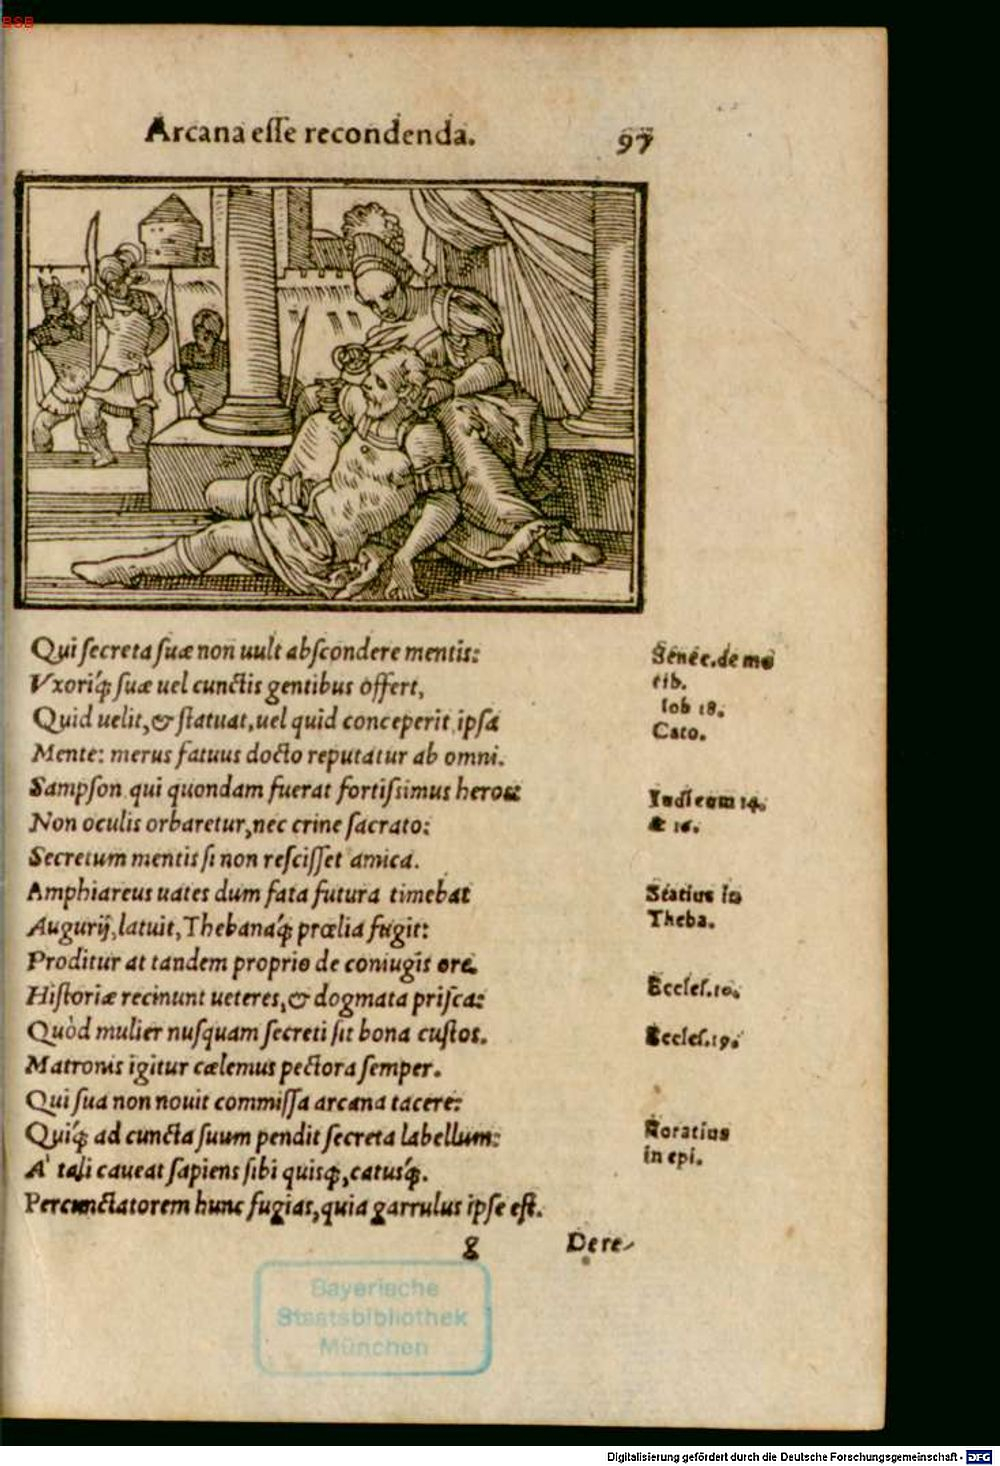 BSB
Arcana eſſe recondenda.
97
Qui ſecreta ſuæ non uult abſcondere mentis:
Vxoriq́; ſuæ uel cunctis gentibus offert,
Quid uelit, & ſtatuat, uel quid conceperit ipſa
Mente: merus fatuus docto reputatur ab omni.
Sampſon qui quondam fuerat fortiſsimus heros:
Non oculis orbaretur, nec crine ſacrato:
Secretum mentis ſi non reſciſſet amica.
Amphiareus uates dum fata futura timebat
Augurij, latuit, Thebanaq́; prœlia fugit:
Proditur at tandem proprio de coniugis ore.
Hiſtoriæ recinunt ueteres, & dogmata priſca:
Quòd mulier nuſquam ſecreti ſit bona cuſtos.
Matronis igitur cælemus pectora ſemper.
Qui ſua non nouit commiſſa arcana tacere:
Quiq́; ad cuncta ſuum pendit ſecreta labellum:
A' tali caueat ſapiens ſibi quisq;, catusq́;.
Percunctatorem hunc fugias, quia garrulus ipſe eſt.
Senec. de mo
rib.
Iob 18.
Cato.
Iudicum 14.
& 16.
Statius in
Theba.
Eccleſ. 10.
Eccleſ. 19.
Horatius
in epi.
g
De re-
Bayerische
Staatsbibliothek
München
Digitalisierung gefördert durch die Deutsche Forschungsgemeinschaft - DFG